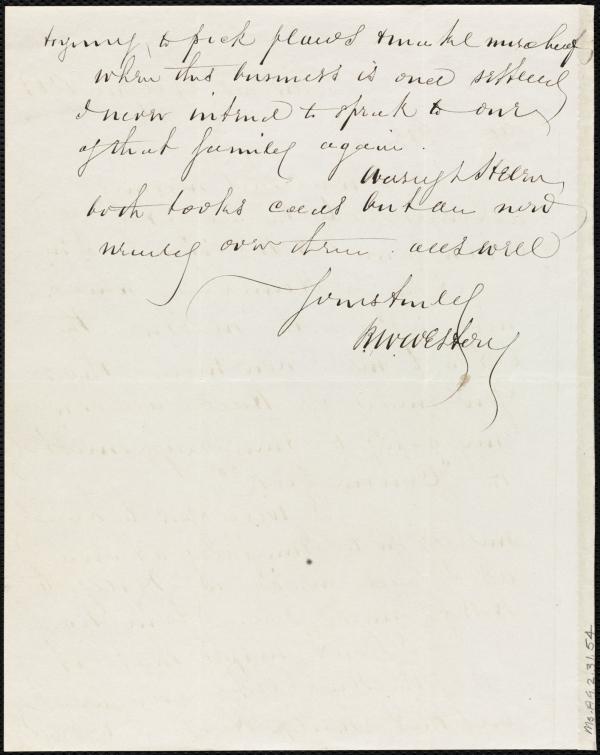 trying, to pick flaws & make mischief,
when this business is once settled
I never intend to speak to one
of that family again.
Warren & Helen,
both took colds but are now
nearly over them. all's well
Yours truly
R. W. Weston
Ms.A.9.2.31.54